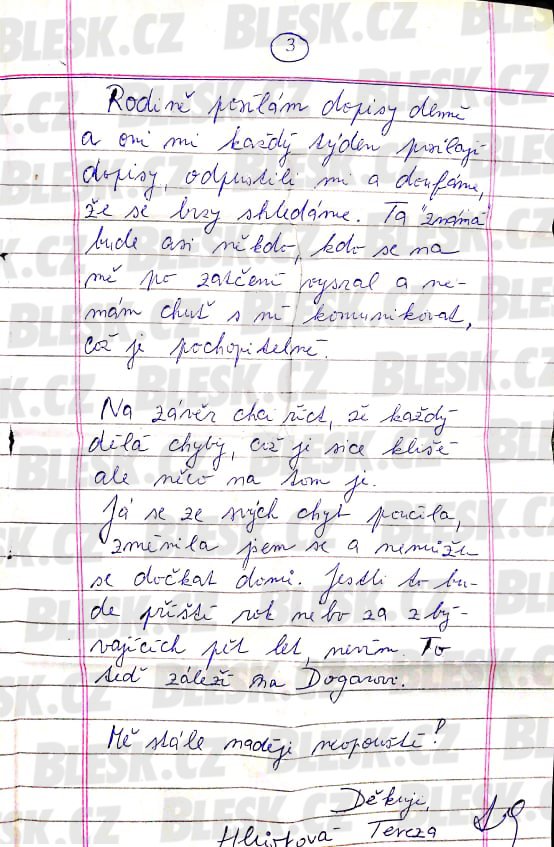 3
Rodině posílám dopisy denně
a oni mi každý týden posílají
dopisy, odpustili mi a doufáme,
že se brzy shledáme. Ta "známá"
bude asi někdo, kdo se na
mě po zatčení vysral a ne-
mám chuť s ní komunikovat,
což je pochopitelné.
Na závěr chci říct, že každý
dělá chyby, což je sice klišé
ale něco na tom je.
Já se ze svých chyb poučila,
změnila jsem se a nemůžu
se dočkat domů. Jestli to bu-
de příští rok nebo za zbý-
vajících pět let, nevím. To
teď záleží na Dogarovi.
Mě stále naděje neopouští!
Děkuji,
Hlůstová Tereza
BLESK.CZ